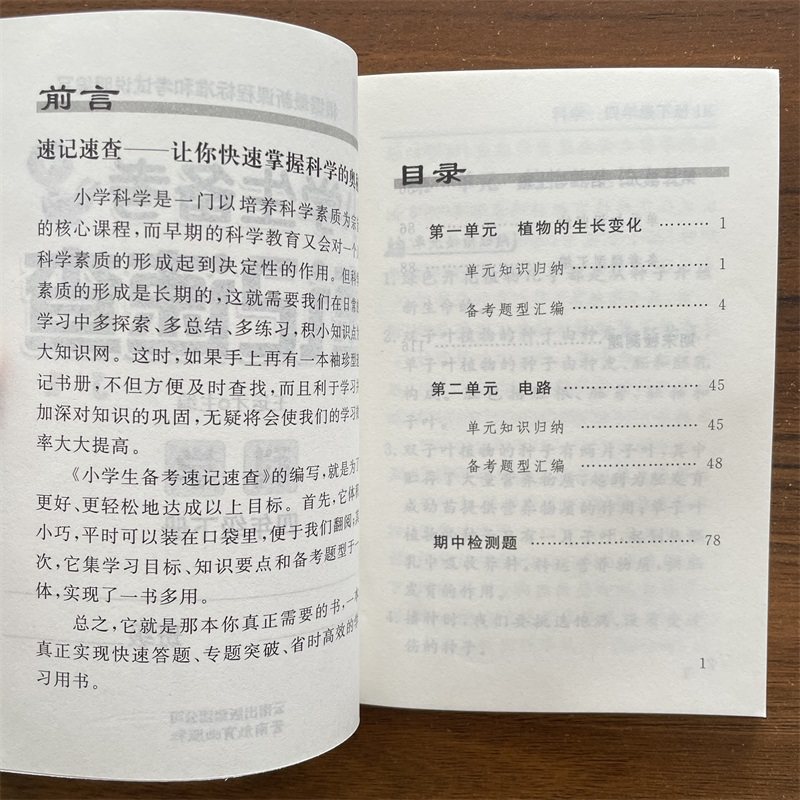 前言
速记速查——让你快速掌握科学的奥
小学科学是一门以培养科学素质为宗
的核心课程,而早期的科学教育又会对一个
科学素质的形成起到决定性的作用。但科
素质的形成是长期的,这就需要我们在日常
学习中多探索、多总结、多练习,积小知识点
大知识网。这时,如果手上再有一本袖珍型
记书册,不但方便及时查找,而且利于学习
加深对知识的巩固,无疑将会使我们的学习
率大大提高。
《小学生备考速记速查》的编写,就是为了
更好、更轻松地达成以上目标。首先,它体积
小巧,平时可以装在口袋里,便于我们翻阅;其
次,它集学习目标、知识要点和备考题型于一
体,实现了一书多用。
总之,它就是那本你真正需要的书,一本
真正实现快速答题、专题突破、省时高效的学
习用书。
目录
第一单元 植物的生长变化 ……… 1
单元知识归纳 ……………… 1
备考题型汇编 ……………… 4
第二单元 电路 ……………… 45
单元知识归纳 ……………… 45
备考题型汇编 ……………… 48
期中检测题 ……………………… 78
1